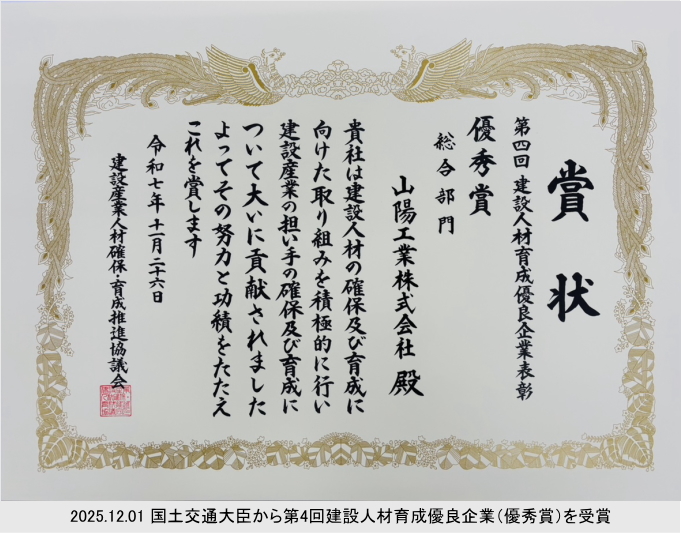 賞状
第四回 建設人材育成優良企業表彰
優秀賞
総合部門
山陽工業株式会社 殿
貴社は建設人材の確保及び育成に
向けた取り組みを積極的に行い
建設産業の担い手の確保及び育成に
ついて大いに貢献されました
よってその努力と功績をたたえ
これを賞します
令和七年 十一月 二十六日
建設産業人材確保・育成推進協議会
2025.12.01 国土交通大臣から第4回建設人材育成優良企業(優秀賞)を受賞